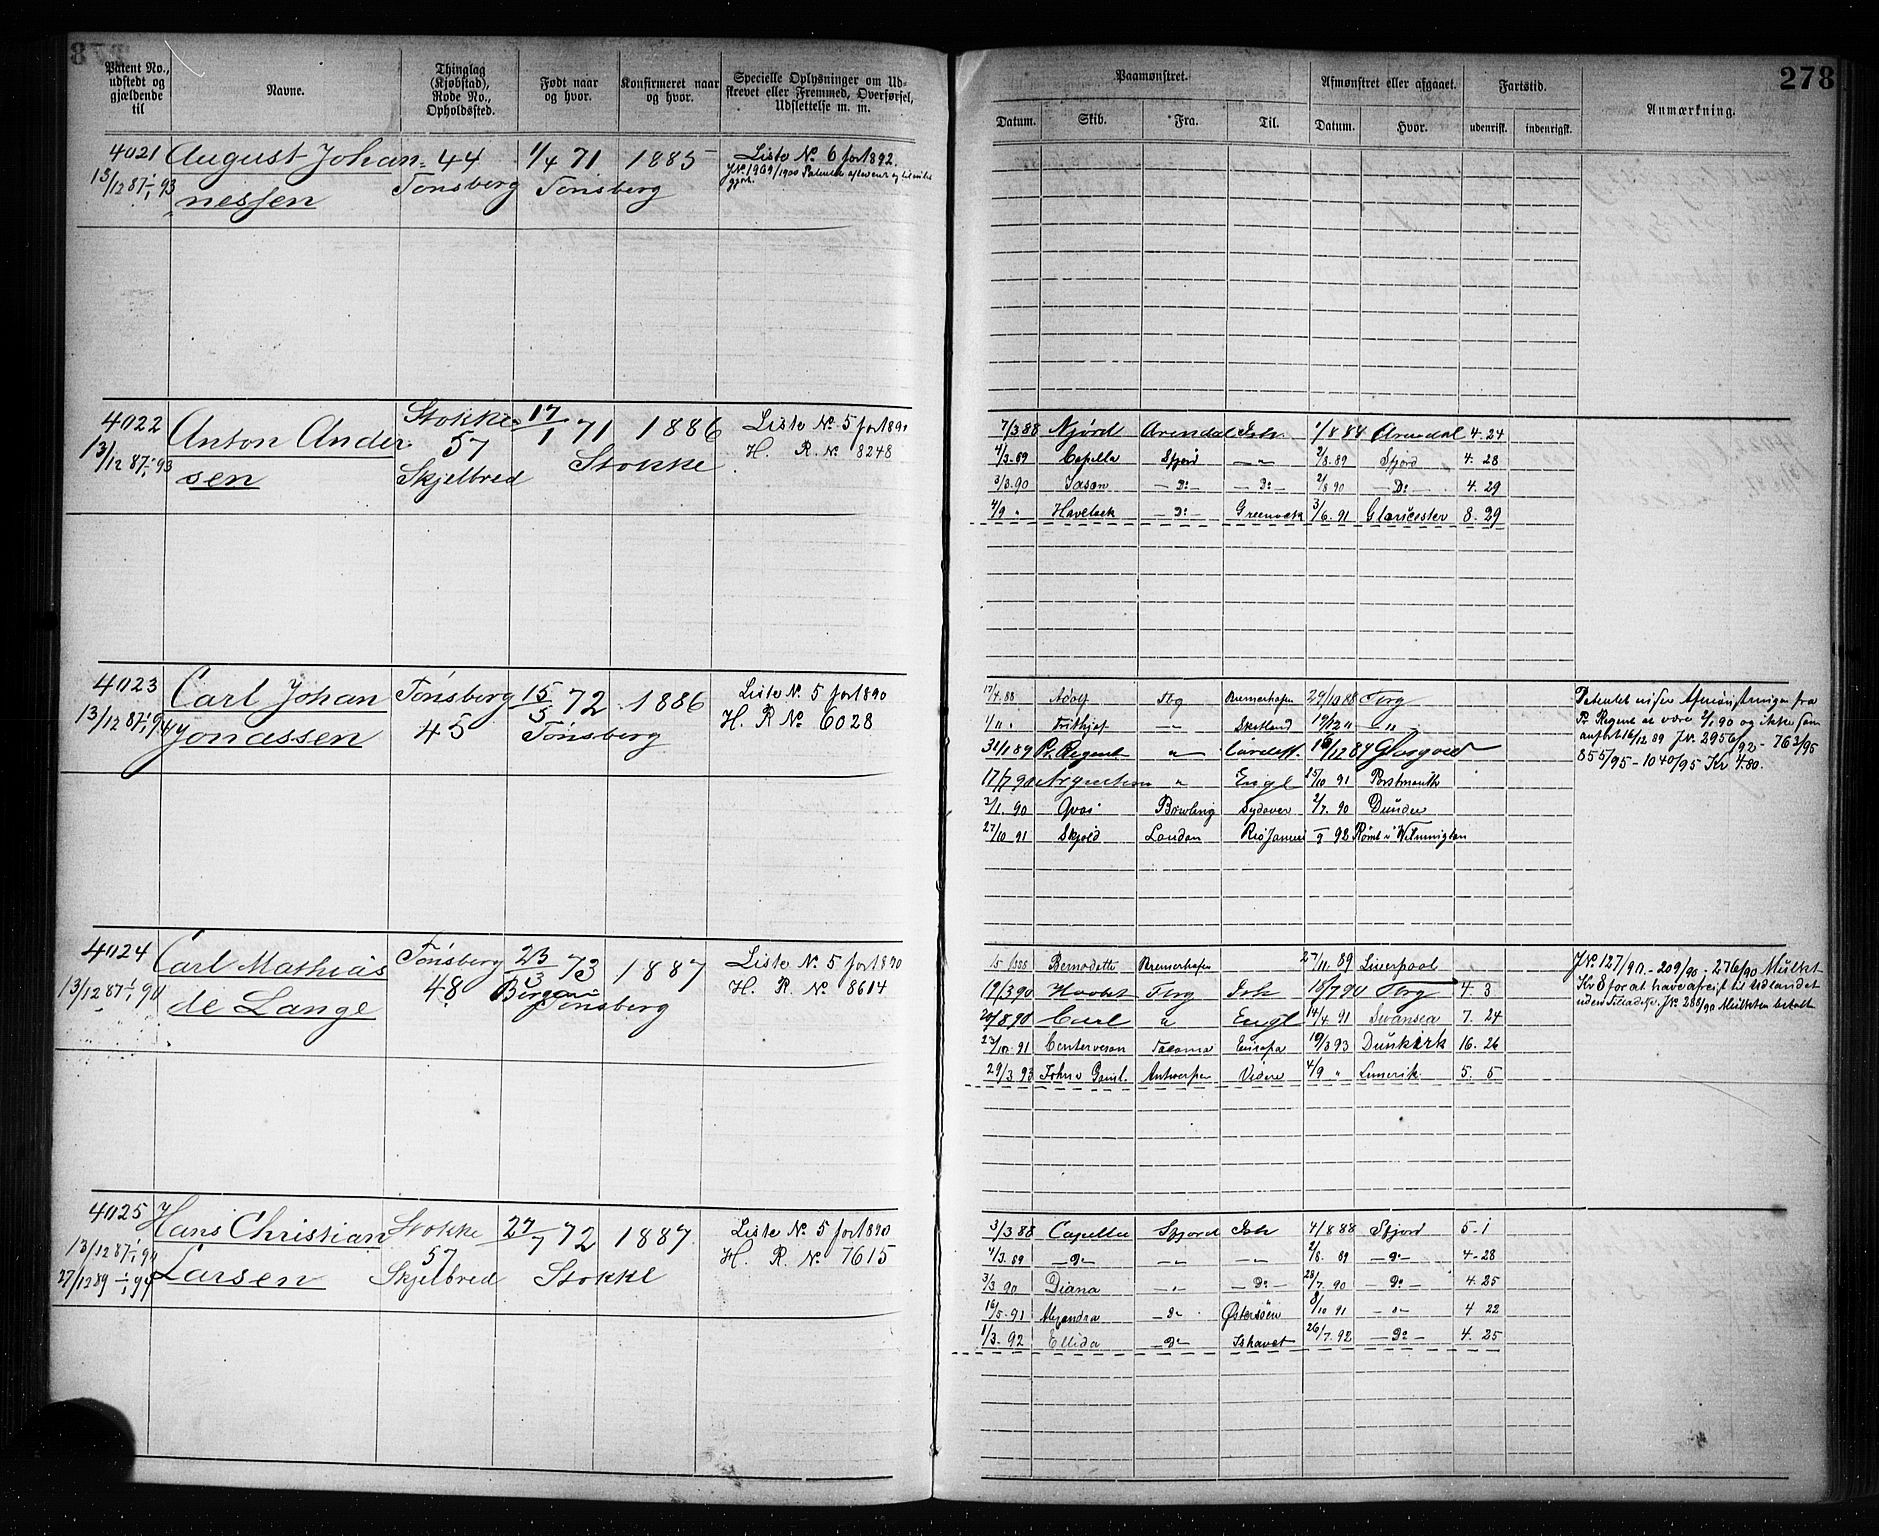 278
Patent No., udstedt og gjældende til
Navne.
Thinglag (Kjøbstad), Rode No., Opholdssted.
Født naar og hvor.
Konfirmeret naar og hvor.
Specielle Oplysninger om Udstrevet eller Fremmed, Overførsel, Udslettelse m. m.
Paamønstret.
Afmønstret eller afgaaet.
Fartstid.
Anmærkning.
Datum. Skib. Fra. Til. Datum. Hvor. udenrisk. indenrigsk.
4021 August Johan= 44 1/4 71 1885 Liste No 6 for 1892.
13/12 87 1/1 93 nessen Tønsberg Tønsberg J.No 1909/1900
4022 Anton Ander Stokke 17/1 71 1886 Liste No 5 for 1890
13/12 87 1/1 93 sen 57 Skjelbred Stokke H. R. No 8248
7/3 88 Njørd Arendal Ish. 1/8 88 Arendal 4. 24
4/3. 89 Capella Sfjord — " — 2/8. 89 Sfjord 4. 28
3/3. 90 Jason — Do — — Do — 2/8 90 — Do — 4. 29
4/9 " Havelock — Do — Greenock 3/6. 91 Gloucester 8. 29
4023 Carl Johan Tønsberg 15/5 72 1886 Liste No 5 for 1890
13/12 87 1/1 94 Jonassen 45 Tønsberg H. R. No 6028
17/4. 88 Adolf Tbg Bremerhafen 29/10 88 Tbrg
1/11 " Frithjof — " — Skotland 19/12 " "
31/1 89 Pr. Regent " Cardiff. 16/12 89 Glasgow
17/7 90 Argentina " Engl 15/10 91 Portsmouth
2/1. 90 Bowling Sydover 2/7. 90 Dundee
27/10 91 Skjold London Rio Janeiro 9 92 Rømt i Wilmington
Patentet viser Afmønstringen fra
Pr. Regent at være 2/1 90 og ikke som
anført 16/12 89 J.No 2956/92 - 763/95
855/95 - 1040/95 Kr 4.80.
4024 Carl Mathias Tønsberg 23/3 73 1887 Liste No 5 for 1890
13/12 87 1/1 94 de Lange 48. Bergen Tønsberg H. R. No 8614
Bernadette Bremerhafen 27/11. 89 Liverpool
19/3 90 Haabet Tbrg Ish 18/7 90 Tbrg 4. 3
20/8. 90 Carl " Engl 14/4 91 Swansea 7. 24
23/10. 91 Tacoma Europa 19/3 93 Dunkerk 16. 26
29/3. 93 Antwerpen Videre 4/9 " Limerik. 5. 5
J.No 127/90. - 209/90 - 276/90 Mulkt
Kr 8 for at have afreist til Udlandet
uden Tilladelse. J.No 288/90 Mulkten betalt
4025 Hans Christian Stokke 27/7 72 1887 Liste No 5 for 1890
13/12 87 1/1 94 57
27/12 89 1/1 94 Larsen Skjelbred Stokke H. R. No 7615
3/3 88 Capella Sfjord Ish 4/8 88 Sfjord 5. 1
4/3. 89 — Do — — " — — " — 2/8. 89 — Do — 4. 28
3/3 90 Diana — " — — Do — 28/7. 90 — Do — 4. 25
16/5. 91 — Do — Østersøen 8/10 91 — " — 4 22
1/3. 92 Ellida — Do — Ishavet 26/7. 92 — Do — 4. 25